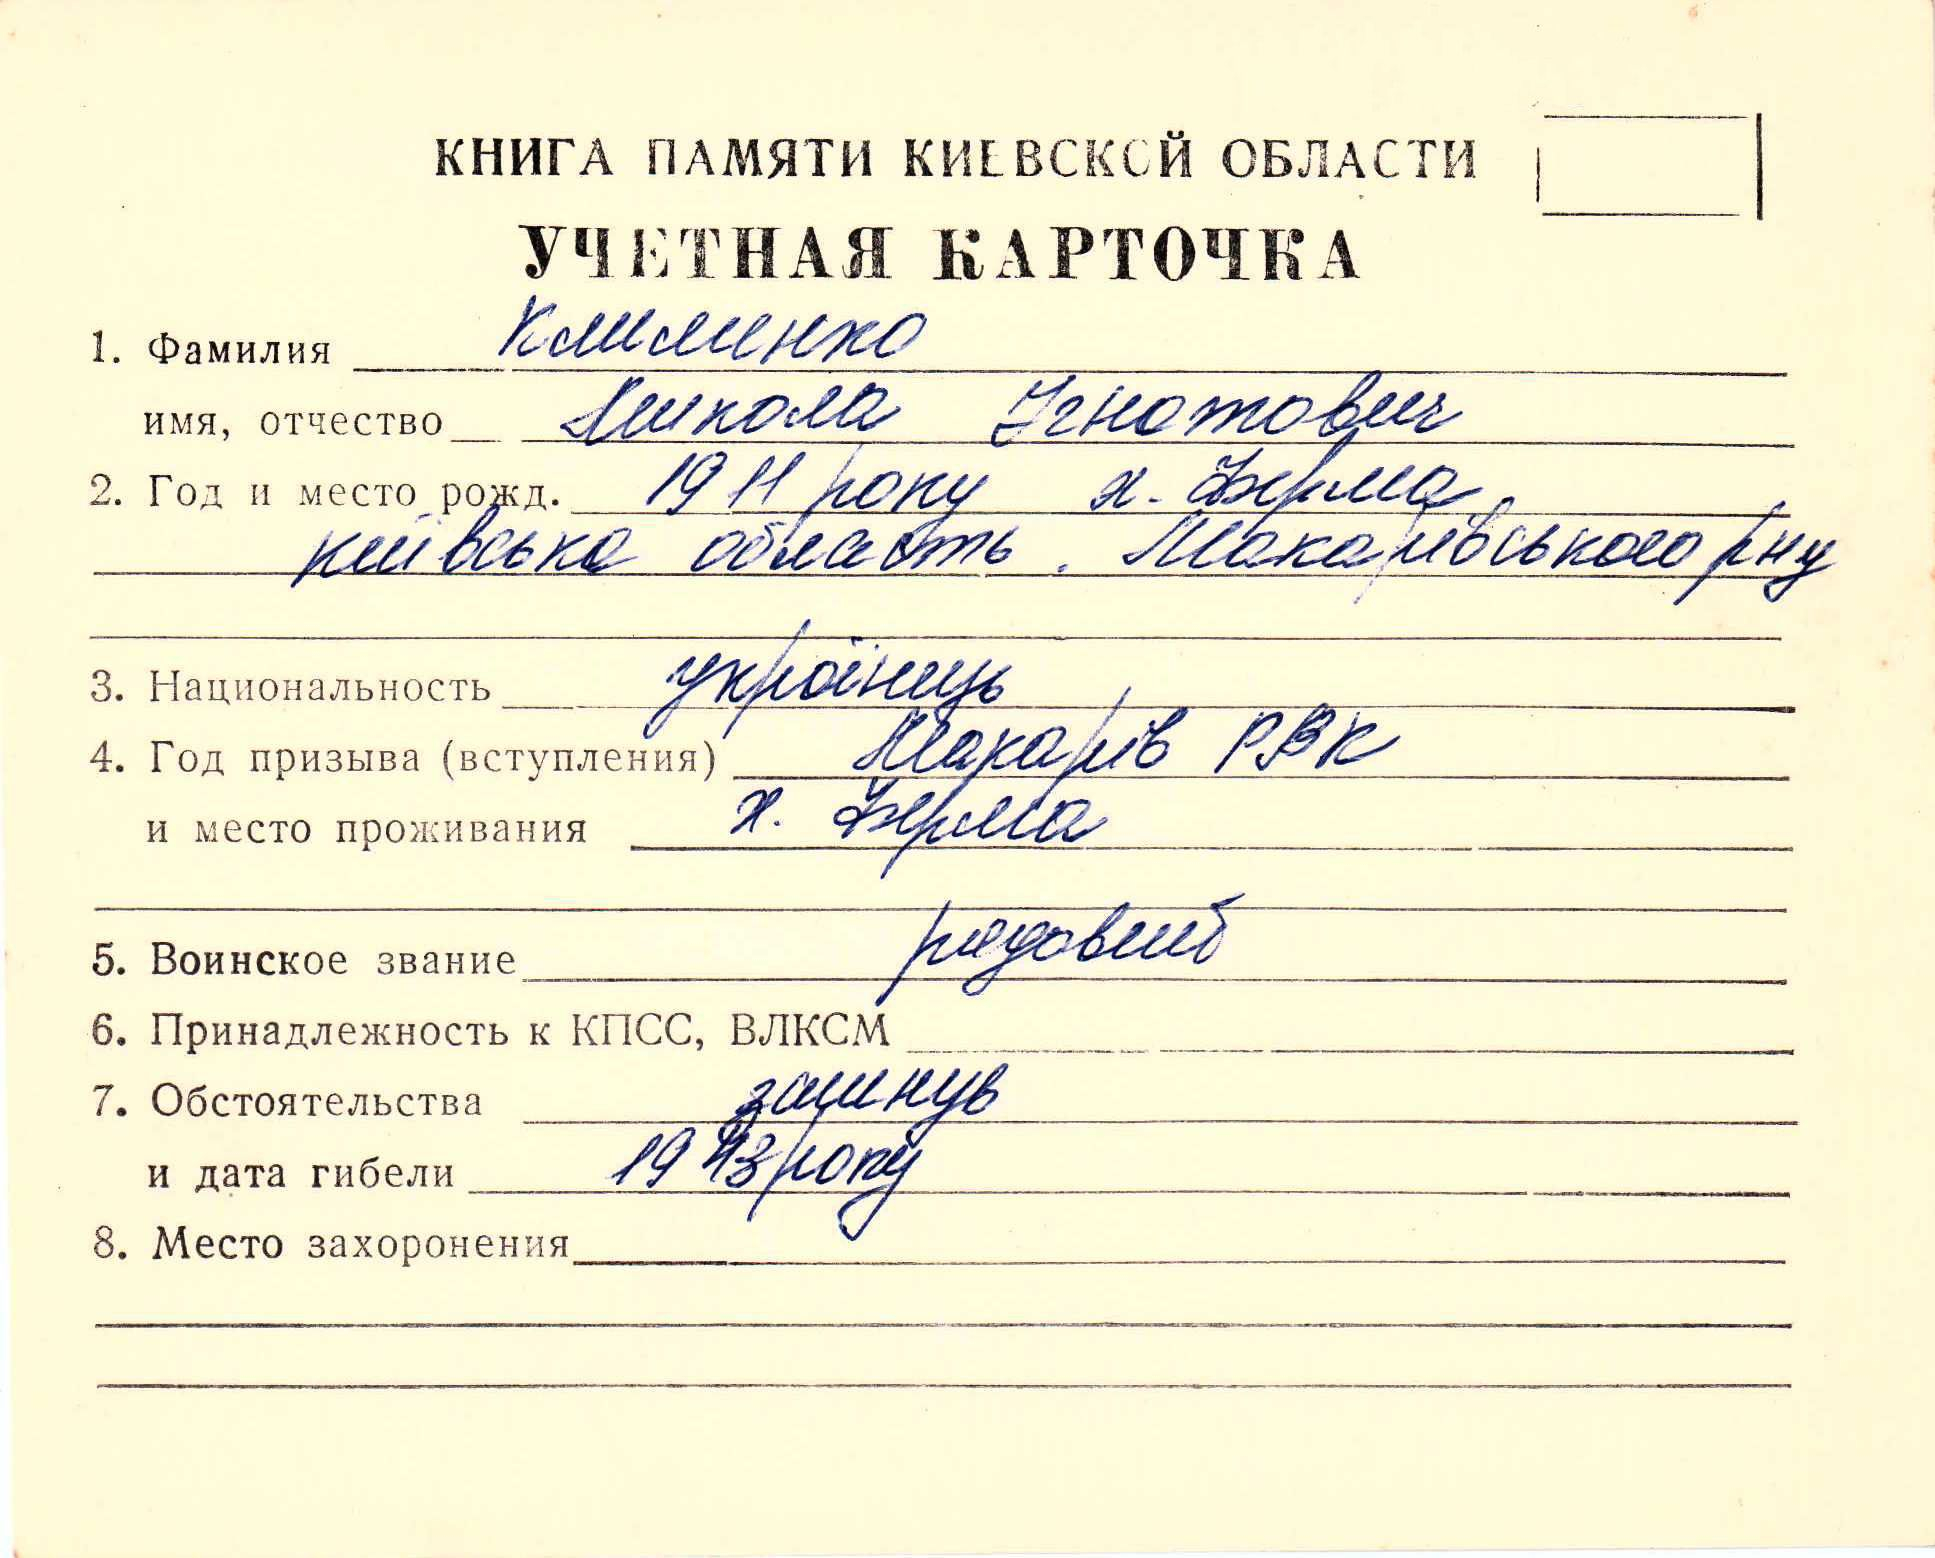 КНИГА ПАМЯТИ КИЕВСКОЙ ОБЛАСТИ
УЧЕТНАЯ КАРТОЧКА
1. Фамилия Клименко
имя, отчество Микола Ігнатович
2. Год и место рожд. 1911 року х. Верма,
київська область. Макарівського рну
3. Национальность українець
4. Год призыва (вступления) Макарів РВК
и место проживания х. Верма
5. Воинское звание рядовий
6. Принадлежность к КПСС, ВЛКСМ
7. Обстоятельства загинув
и дата гибели 1943 року
8. Место захоронения